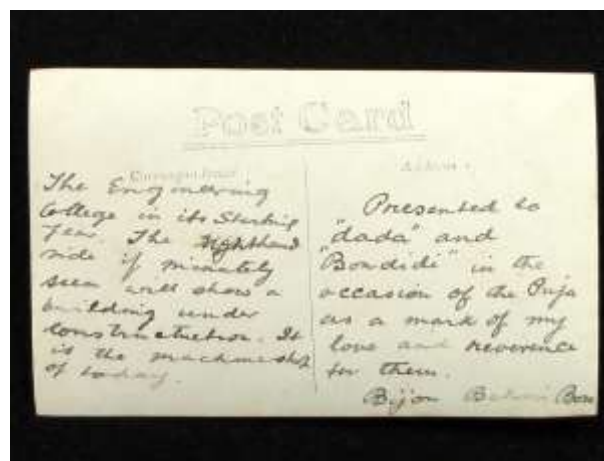 Post Card
Correspondence
Address
The Engineering
College in its Starting
Year. The righthand
side if minutely
seen will show a
building under
construction. It
is the machineshop
of today.
Presented to
"dada" and
"Bondidi" in the
occasion of the Puja
as a mark of my
love and reverence
for them.
Bijon Bose